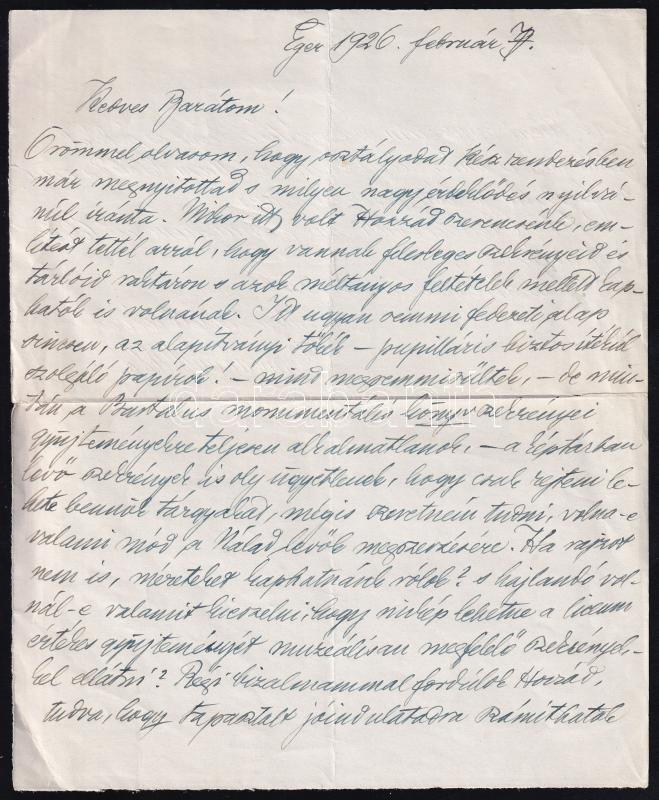 Eger 1926. február 7.
Kedves Barátom!
Örömmel olvasom, hogy osztályodat kész rendezésben
már megnyitottad s milyen nagy érdeklődés nyilvá-
núl iránta. Mikor itt volt Hozzád szerencsénk, em-
lítést tettél arról, hogy vannak felesleges szekrényeid és
tárlóid raktáron s azok méltányos feltételek mellett kap-
hatók is volnának. Itt ugyan semmi fedezeti alap
sincsen, az alapítványi tőkék – pupilláris biztosítékúl
szolgáló papírok! – mind megsemmisültek, – de miu-
tán a Bartalis monumentális könyvszekrényei
gyüjteményekre teljesen alkalmatlanok, – a képtárban
levő szekrények is oly ügyetlenek, hogy csak rejteni le-
het bennük tárgyakat, mégis szeretném tudni, volna-e
valami mód a Nálad levők megszerzésére. Ha rajzot
nem is, méreteket kaphatnánk rólok? s hajlandó vol-
nál-e valamit kieszelni, hogy mikép lehetne a liceum
értékes gyüjteményét muzeálisan megfelelő szekrények-
kel ellátni? Régi bizalmammal fordúlok Hozzád,
tudva, hogy tapasztalt jóindulatodra számíthatok
darabanth